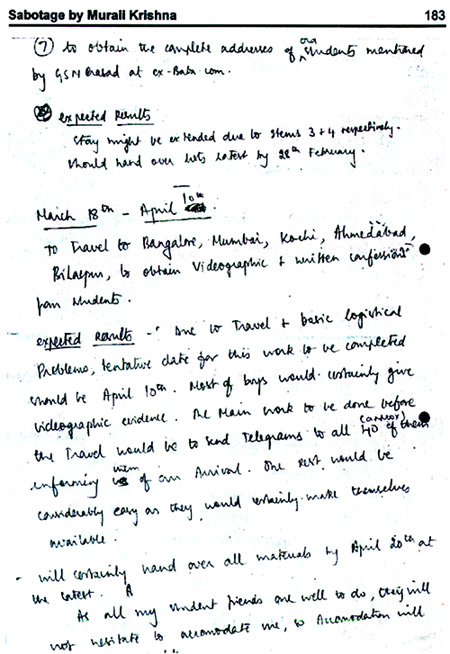 Sabotage by Murali Krishna 183
(7) to obtain the complete addresses of our students mentioned
by GSN Prasad at ex-Baba.com.
expected Results
Stay might be extended due to items 3 + 4 respectively.
Should hand over lists latest by 28th February.
March 18th - April 10th.
To Travel to Bangalore, Mumbai, Kochi, Ahmedabad,
Bilaspur, to obtain Videographic + written confessions
from students.
expected Results - Due to Travel + basic logistical
Problems, tentative date for this work to be completed
should be April 10th. Most of boys would certainly give
videographic evidence. The Main work to be done before
the Travel would be to send Telegrams to all 40 (approx) of them
informing them of our Arrival. The rest would be
considerably easy as they would certainly make themselves
available.
- will certainly hand over all materials by April 20th at
the latest.
As all my student friends are well to do, they will
not hesitate to accomodate me, so Accomodation will